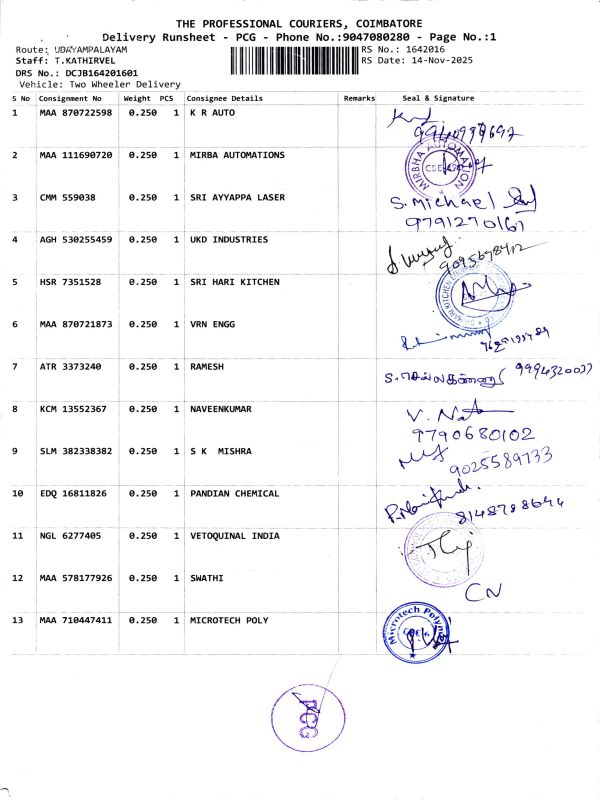 THE PROFESSIONAL COURIERS, COIMBATORE
Delivery Runsheet - PCG - Phone No.:9047080280 - Page No.:1
Route: UDAYAMPALAYAM
RS No.: 1642016
Staff: T.KATHIRVEL
RS Date: 14-Nov-2025
DRS No.: DCJB164201601
Vehicle: Two Wheeler Delivery
S No Consignment No Weight PCS Consignee Details Remarks Seal & Signature
1 MAA 870722598 0.250 1 K R AUTO
2 MAA 111690720 0.250 1 MIRBA AUTOMATIONS
MIRBHA AUTOMATION
3 CMM 559038 0.250 1 SRI AYYAPPA LASER S. Michael
9791270167
4 AGH 530255459 0.250 1 UKD INDUSTRIES
9095698412
5 HSR 7351528 0.250 1 SRI HARI KITCHEN
6 MAA 870721873 0.250 1 VRN ENGG
7 ATR 3373240 0.250 1 RAMESH
8 KCM 13552367 0.250 1 NAVEENKUMAR
9790680102
9 SLM 382338382 0.250 1 S K MISHRA
9025589733
10 EDQ 16811826 0.250 1 PANDIAN CHEMICAL
11 NGL 6277405 0.250 1 VETOQUINAL INDIA
12 MAA 578177926 0.250 1 SWATHI
CN
13 MAA 710447411 0.250 1 MICROTECH POLY
Microtech Polym
PCG